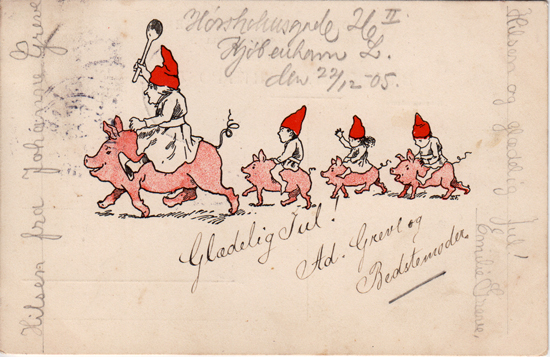 Hørsholmsgade 26 II
Kjøbenhavn L.
den 22/12-05.
Glædelig Jul!
Ad. Greve og
Bedstemoder
Hilsen fra Johanne Greve
Hilsen og glædelig Jul!
Emilie Greve,